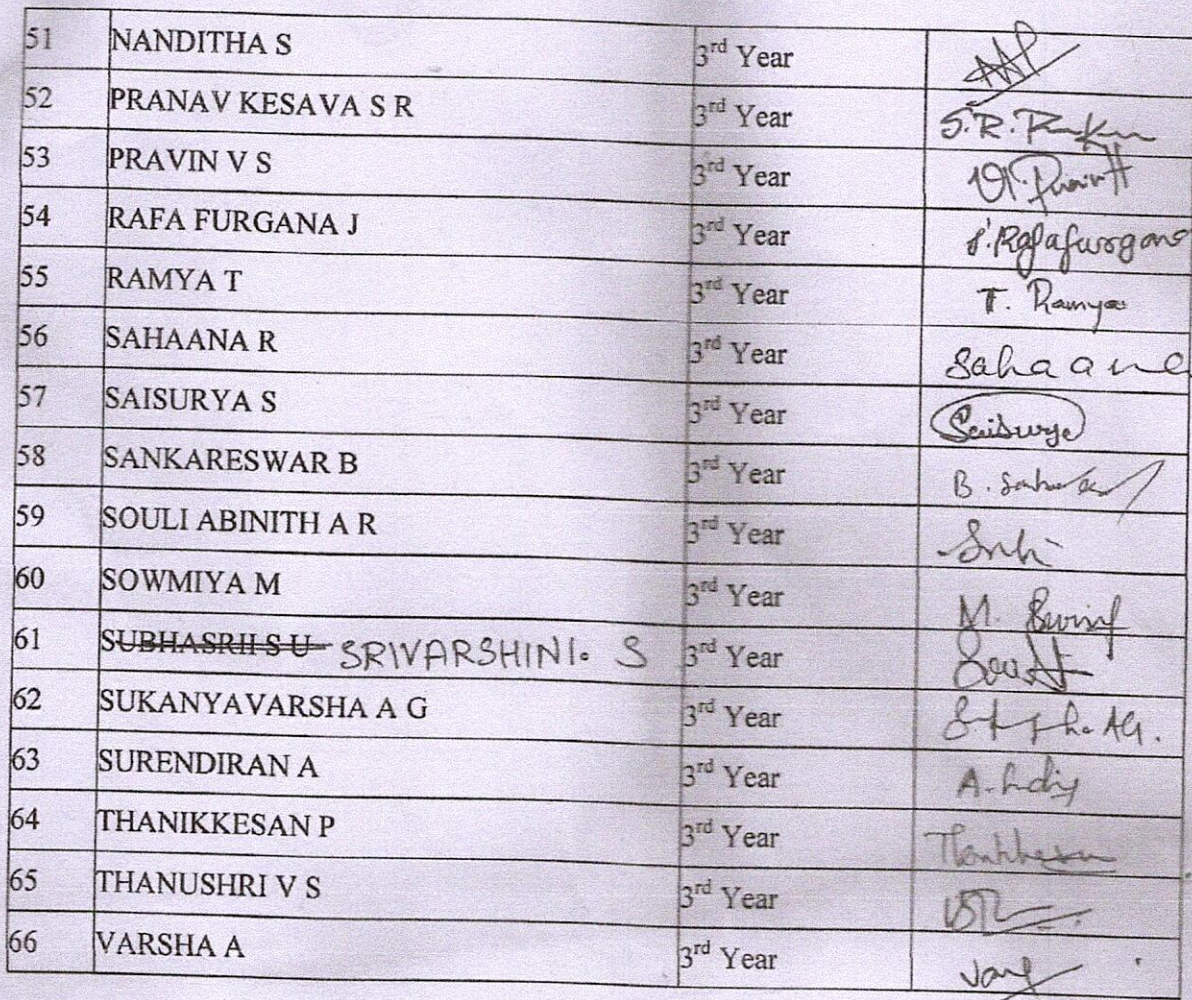 51 NANDITHA S 3rd Year
52 PRANAV KESAVA S R 3rd Year S.R.
53 PRAVIN V S 3rd Year
54 RAFA FURGANA J 3rd Year J. Rafafurgana
55 RAMYA T 3rd Year T. Ramya
56 SAHAANA R 3rd Year Sahaana
57 SAISURYA S 3rd Year Saisurya
58 SANKARESWAR B 3rd Year B.
59 SOULI ABINITH A R 3rd Year
60 SOWMIYA M 3rd Year M.
61 SUBHASRII S U SRIVARSHINI. S 3rd Year
62 SUKANYAVARSHA A G 3rd Year
63 SURENDIRAN A 3rd Year A.
64 THANIKKESAN P 3rd Year
65 THANUSHRI V S 3rd Year
66 VARSHA A 3rd Year